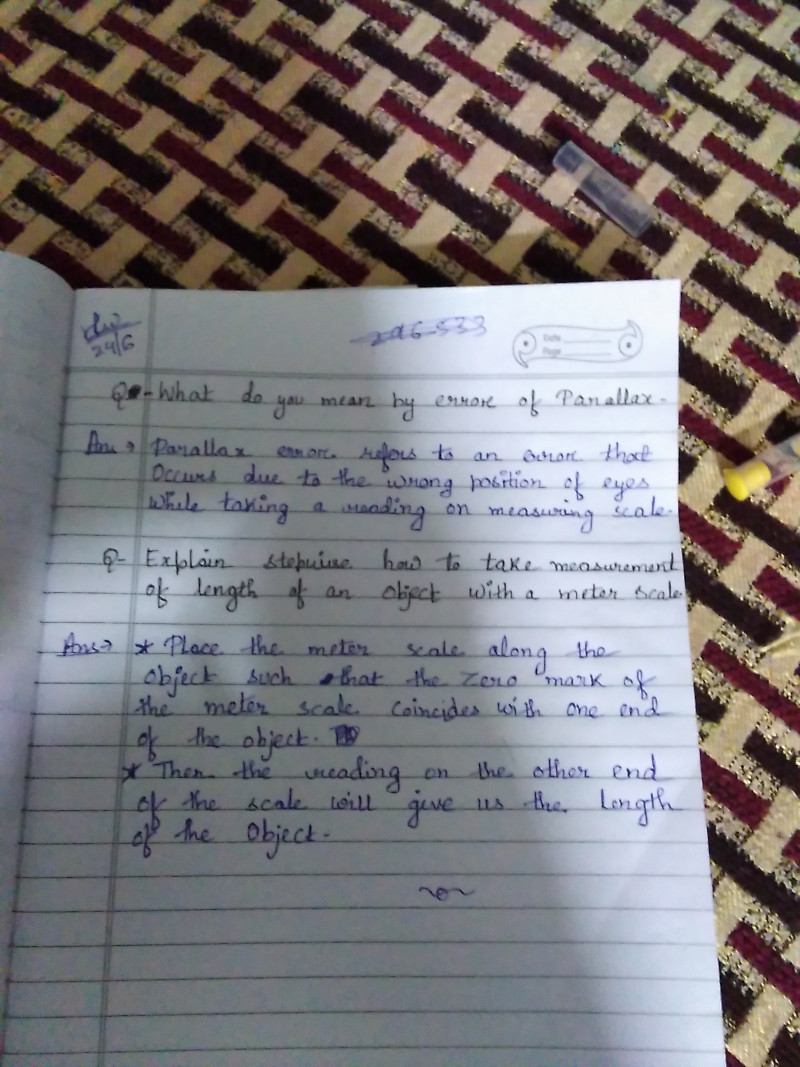 24/6
296533
Date
Page
Q-What do you mean by errore of Parallax-
Ans→ Parallax error refers to an error that
Occurs due to the wrong position of eyes
while taking a reading on measuring scale.
Q- Explain stepwise how to take measurement
of length of an Object with a meter scale
Ans→ * Place the meter scale along the
Object such that the zero mark of
the meter scale Coincides with one end
of the object.
* Then the reading on the other end
of the scale will give us the length
of the Object.